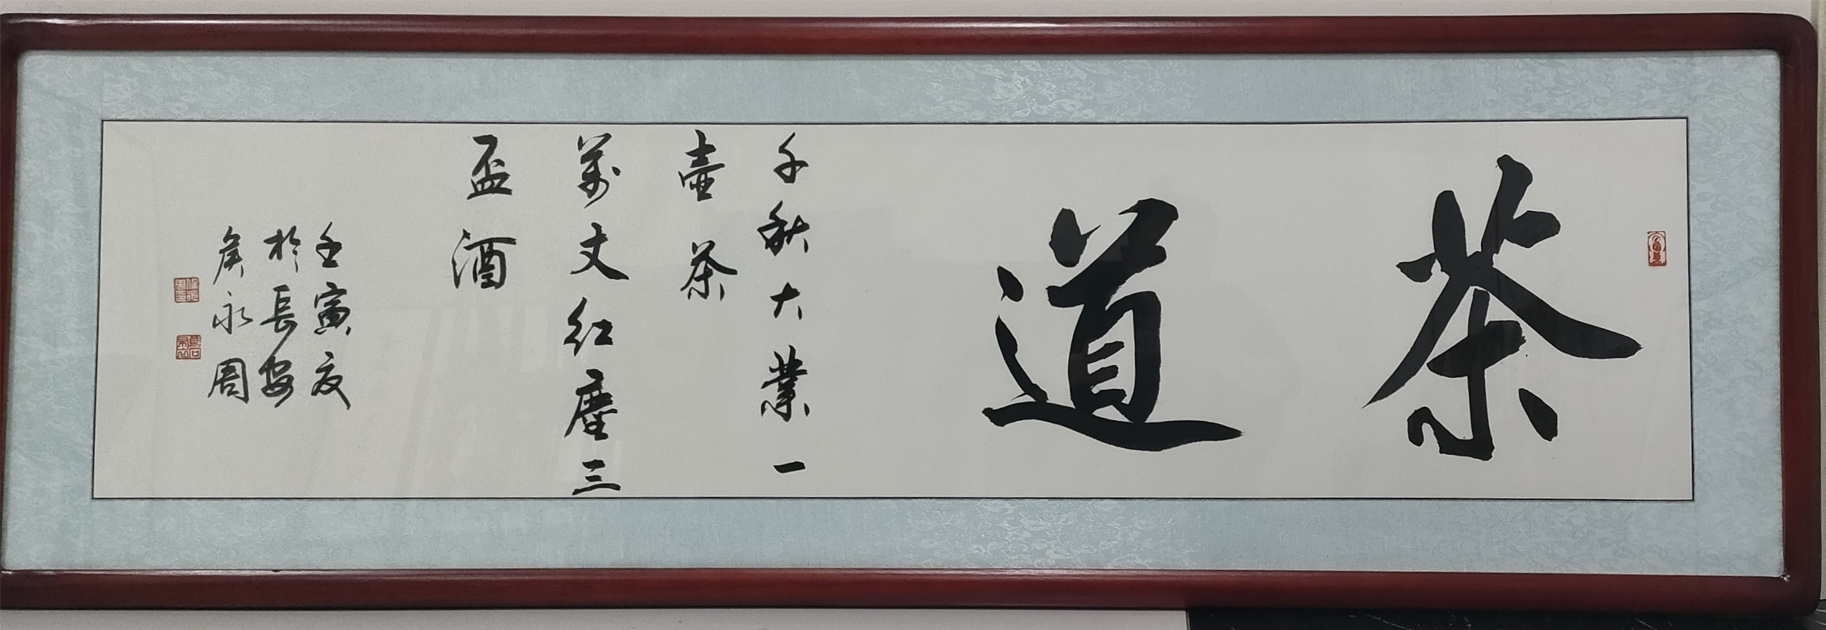 茶道
千秋大業一
壺茶
萬丈紅塵三
盃酒
壬寅夏
於長安
侯永周